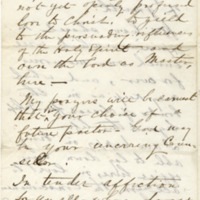 not yet openly professed
love to Christ. to yield
to the persuading influences
of the Holy Spirit and
own the Lord as Master,
here —
My prayers will be constant
that your choice of a
future pastor – God may
be your unerring Coun-
sellor.
In tender affection